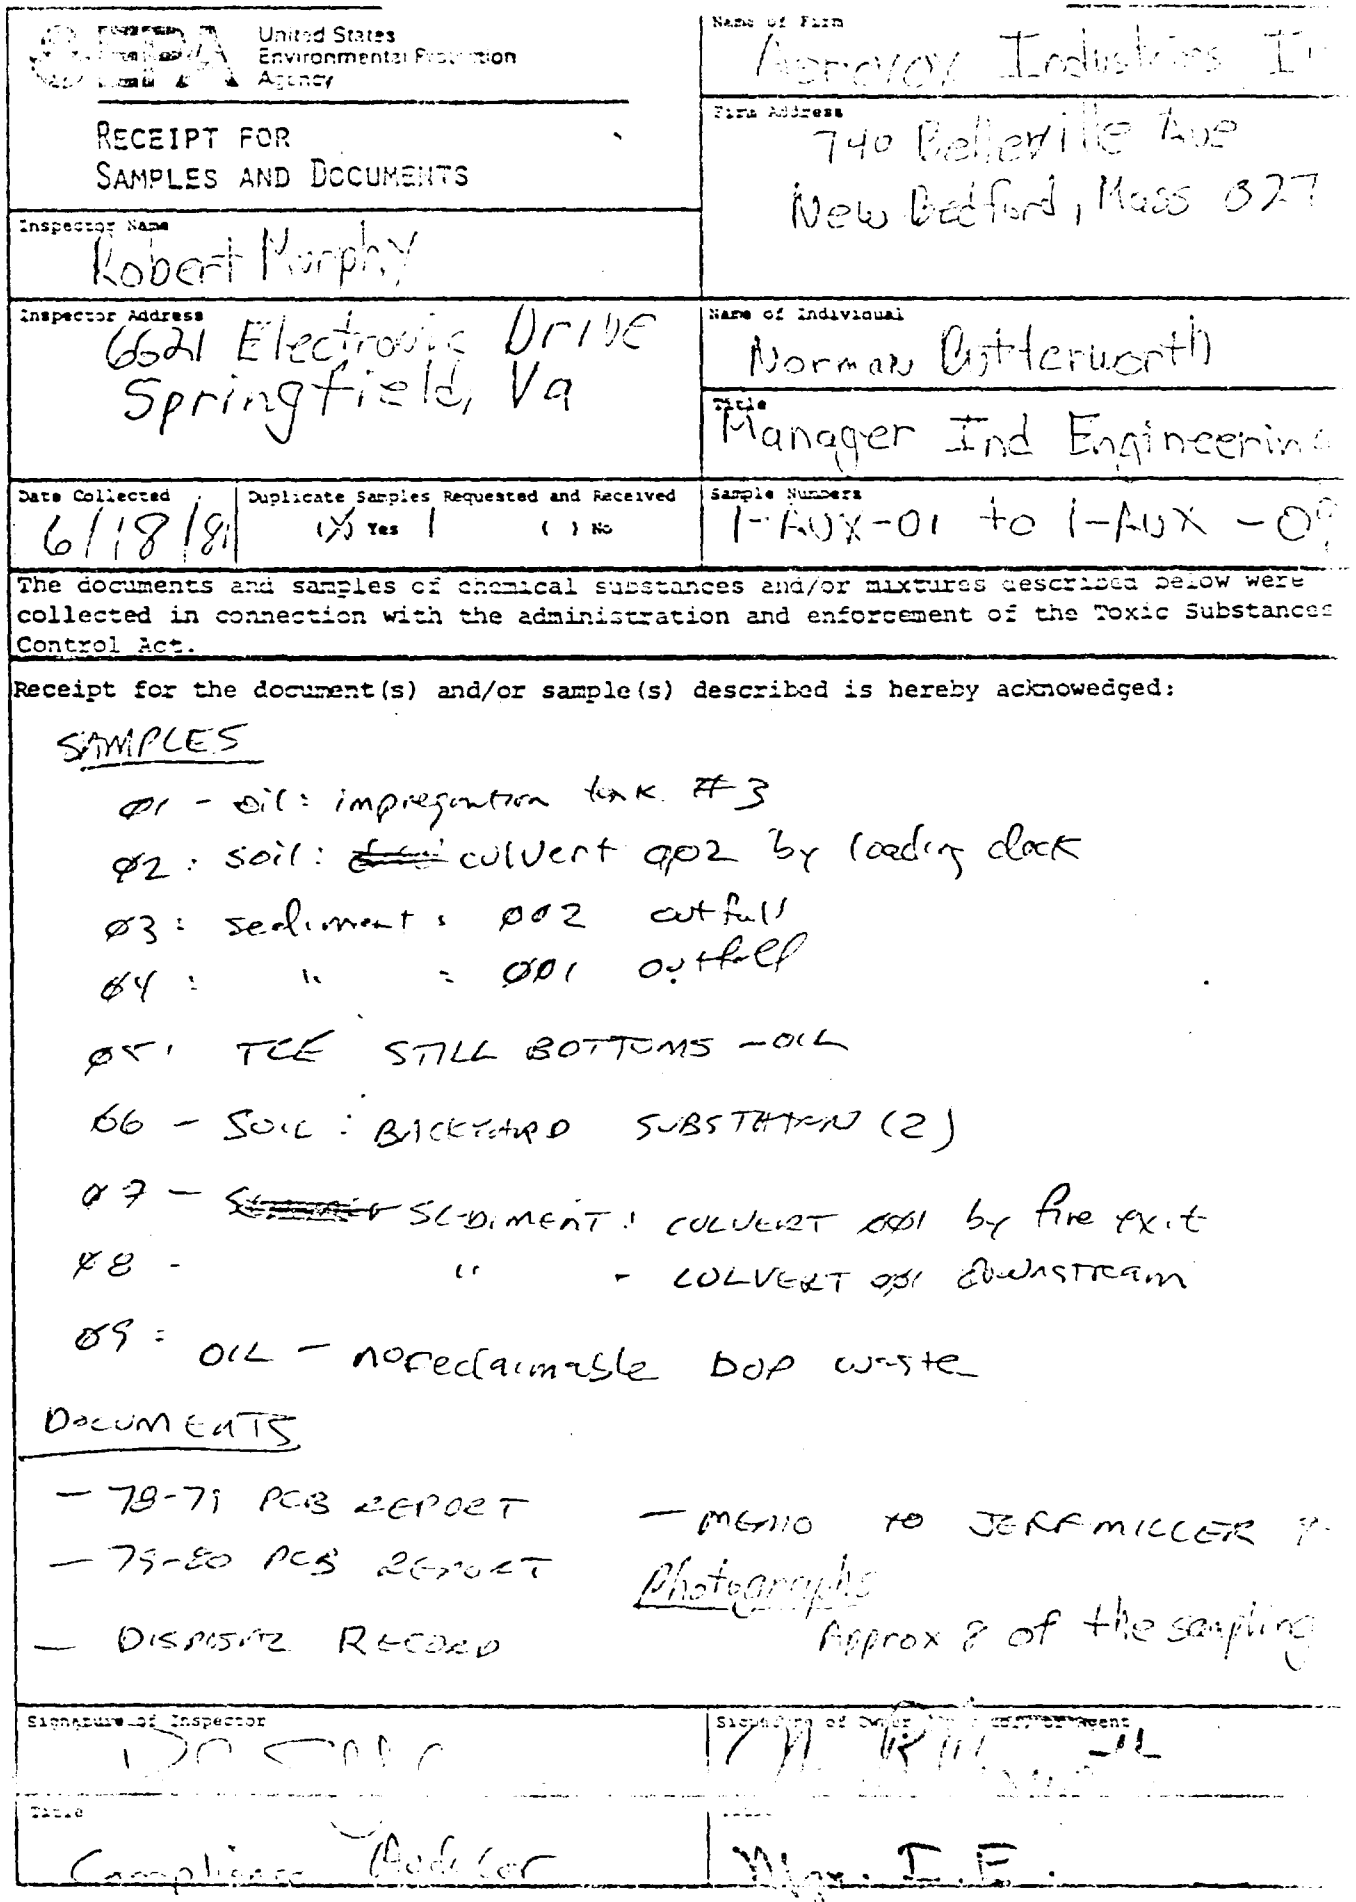 EPA
United States
Environmental Protection
Agency
RECEIPT FOR
SAMPLES AND DOCUMENTS
Name of Firm
Aerovox Industries
Firm Address
740 Belleville Ave
New Bedford, Mass
Inspector Name
Robert Murphy
Inspector Address
6621 Electronic Drive
Springfield, Va
Name of Individual
Norman Butterworth
Title
Manager Ind Engineering
Date Collected
6/18/81
Duplicate Samples Requested and Received
(X) Yes ( ) No
Sample Numbers
1-AUX-01 to 1-AUX-09
The documents and samples of chemical substances and/or mixtures described below were
collected in connection with the administration and enforcement of the Toxic Substances
Control Act.
Receipt for the document(s) and/or sample(s) described is hereby acknowedged:
SAMPLES
01 - oil: impregnation tank #3
02: soil: culvert 002 by loading dock
03: sediment: 002 outfall
04: " : 001 outfall
05: TCE STILL BOTTOMS - OIL
06 - SOIL: BACKYARD SUBSTATION (2)
07 - SEDIMENT: CULVERT 001 by fire exit
08 - " - CULVERT 001 downstream
09: OIL - noreclaimable DOP waste
DOCUMENTS
- 78-79 PCB REPORT
- 79-80 PCB REPORT
- DISPOSAL RECORD
- MEMO TO JEFF MILLER
Photographs
Approx 8 of the sampling
Signature of Inspector
Signature of Owner Agent
Title
Compliance Auditor
Mgr. I.E.